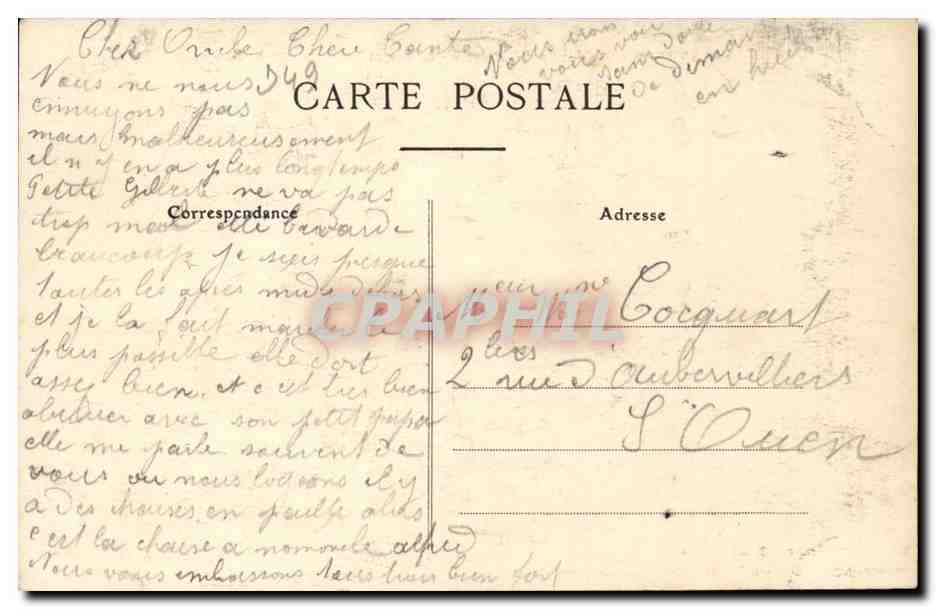 Cher Oncle Chère Tante
Nous irons
vous voir
sans doute
de diman
en huit
Nous ne nous 549
ennuyons pas
mais malheureusement
il n y en a plus longtemps
CARTE POSTALE
Petite ne va pas
trop mal elle bavarde
beaucoup je suis presque
toutes les après midi dehors
et je la fait marcher le
plus possible elle dort
assez bien. et c est très bien
abituer avec son petit papa
elle me parle souvent de
vous ou nous logeons il y
a des chaises en paille alors
c est la chaise a nononcle alfred
Nous vous embrassons tous trois bien fort
Correspondance
Adresse
CPAPHIL
Mr Mme Cocquart
2 bis rue d'Aubervilliers
St Ouen